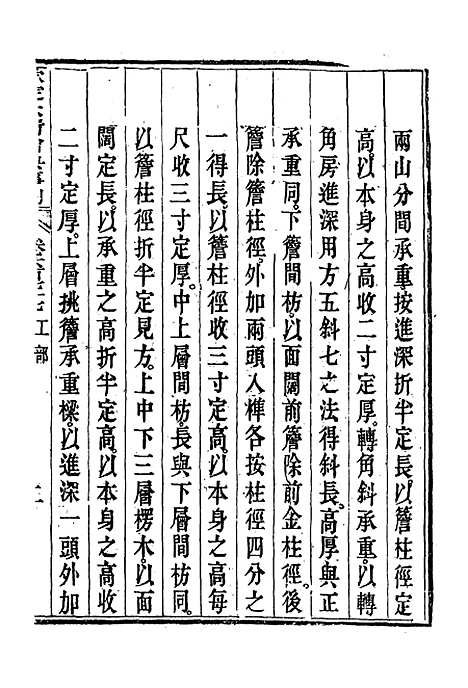 兩山分間承重。按進深折半定長。以簷柱徑定
高。以本身之高收二寸定厚。轉角斜承重。以轉
角房進深。用方五斜七之法得斜長。高厚與正
承重同。下簷間枋。以面闊前簷除前金柱徑。後
簷除簷柱徑。外加兩頭入榫各按柱徑四分之
一得長。以簷柱徑收三寸定高。以本身之高每
尺收三寸定厚。中上層間枋。長與下層間枋同。
以簷柱徑折半定見方。上中下三層楞木。以面
闊定長。以承重之高折半定高。以本身之高收
二寸定厚。上層挑簷承重樑。以進深一頭外加
工部